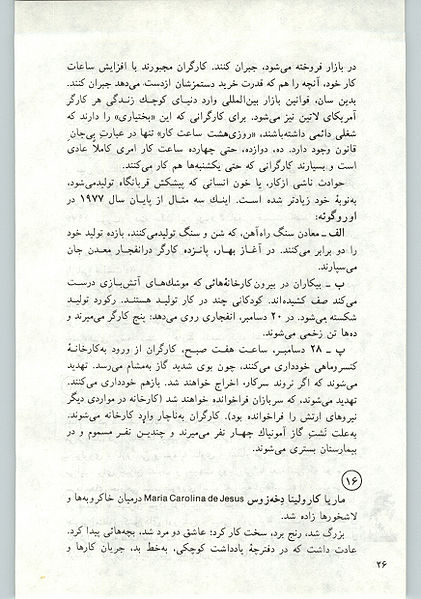 در بازار فروخته می‌شود، جبران کنند. کارگران مجبورند با افزایش ساعات
کار خود، آنچه را هم که قدرت خرید دستمزشان ازدست‌می‌دهد جبران کنند.
بدین سان، قوانین بازار بین‌المللی وارد دنیای کوچك زندگی هر کارگر
آمریکای لاتین نیز می‌شود. برای کارگرانی که این «بختیاری» را دارند که
شغلی دائمی داشته‌باشند، «روزی‌هشت ساعت کار» تنها در عبارت بی‌جان
قانون وجود دارد. ده، دوازده، حتی چهارده ساعت کار امری کاملاً عادی
است و بسیارند کارگرانی که حتی یکشنبه‌ها هم کار می‌کنند.
حوادث ناشی ازکار، یا خون انسانی که پیشکش قربانگاه تولیدمی‌شود،
به‌نوبهٔ خود زیادتر شده است. اینك سه مثال از پایان سال ۱۹۷۷ در
اوروگوئه:
الف ـ معادن سنگ راه‌آهن، که شن و سنگ تولیدمی‌کنند، بازده تولید خود
را دو برابر می‌کنند. در آغاز بهار، پانزده کارگر درانفجار معدن جان
می‌سپارند.
ب ـ بیکاران در بیرون کارخانه‌هائی که موشك‌های آتش‌بازی درست
می‌کند صف کشیده‌اند. کودکانی چند در کار تولید هستند. رکورد تولید
شکسته می‌شود. در ۲۰ دسامبر، انفجاری روی می‌دهد؛ پنج کارگر می‌میرند و
ده‌ها تن زخمی می‌شوند.
پ ـ ۲۸ دسامبر، ساعت هفت صبح، کارگران از ورود به‌کارخانهٔ
کنسروماهی خودداری می‌کنند، چون بوی شدید گاز به‌مشام می‌رسد. تهدید
می‌شوند که اگر نروند سرکار، اخراج خواهند شد. بازهم خودداری می‌کنند.
تهدید می‌شوند، که سربازان فراخوانده خواهند شد (کارخانه در مواردی دیگر
نیروهای ارتش را فراخوانده بود). کارگران به‌ناچار وارد کارخانه می‌شوند.
به‌علت نَشتِ گاز آمونیاك چهار نفر می‌میرند و چندین نفر مسموم و در
بیمارستان بستری می‌شوند.
۱۶
ماریا کارولینا دِخه‌زوس Maria Carolina de Jesus درمیان خاکروبه‌ها و
لاشخورها زاده شد.
بزرگ شد، رنج برد، سخت کار کرد؛ عاشق دو مرد شد، بچه‌هائی پیدا کرد.
عادت داشت که در دفترچهٔ یادداشت کوچکی، به‌خط بد، جریان کارها و
۲۶